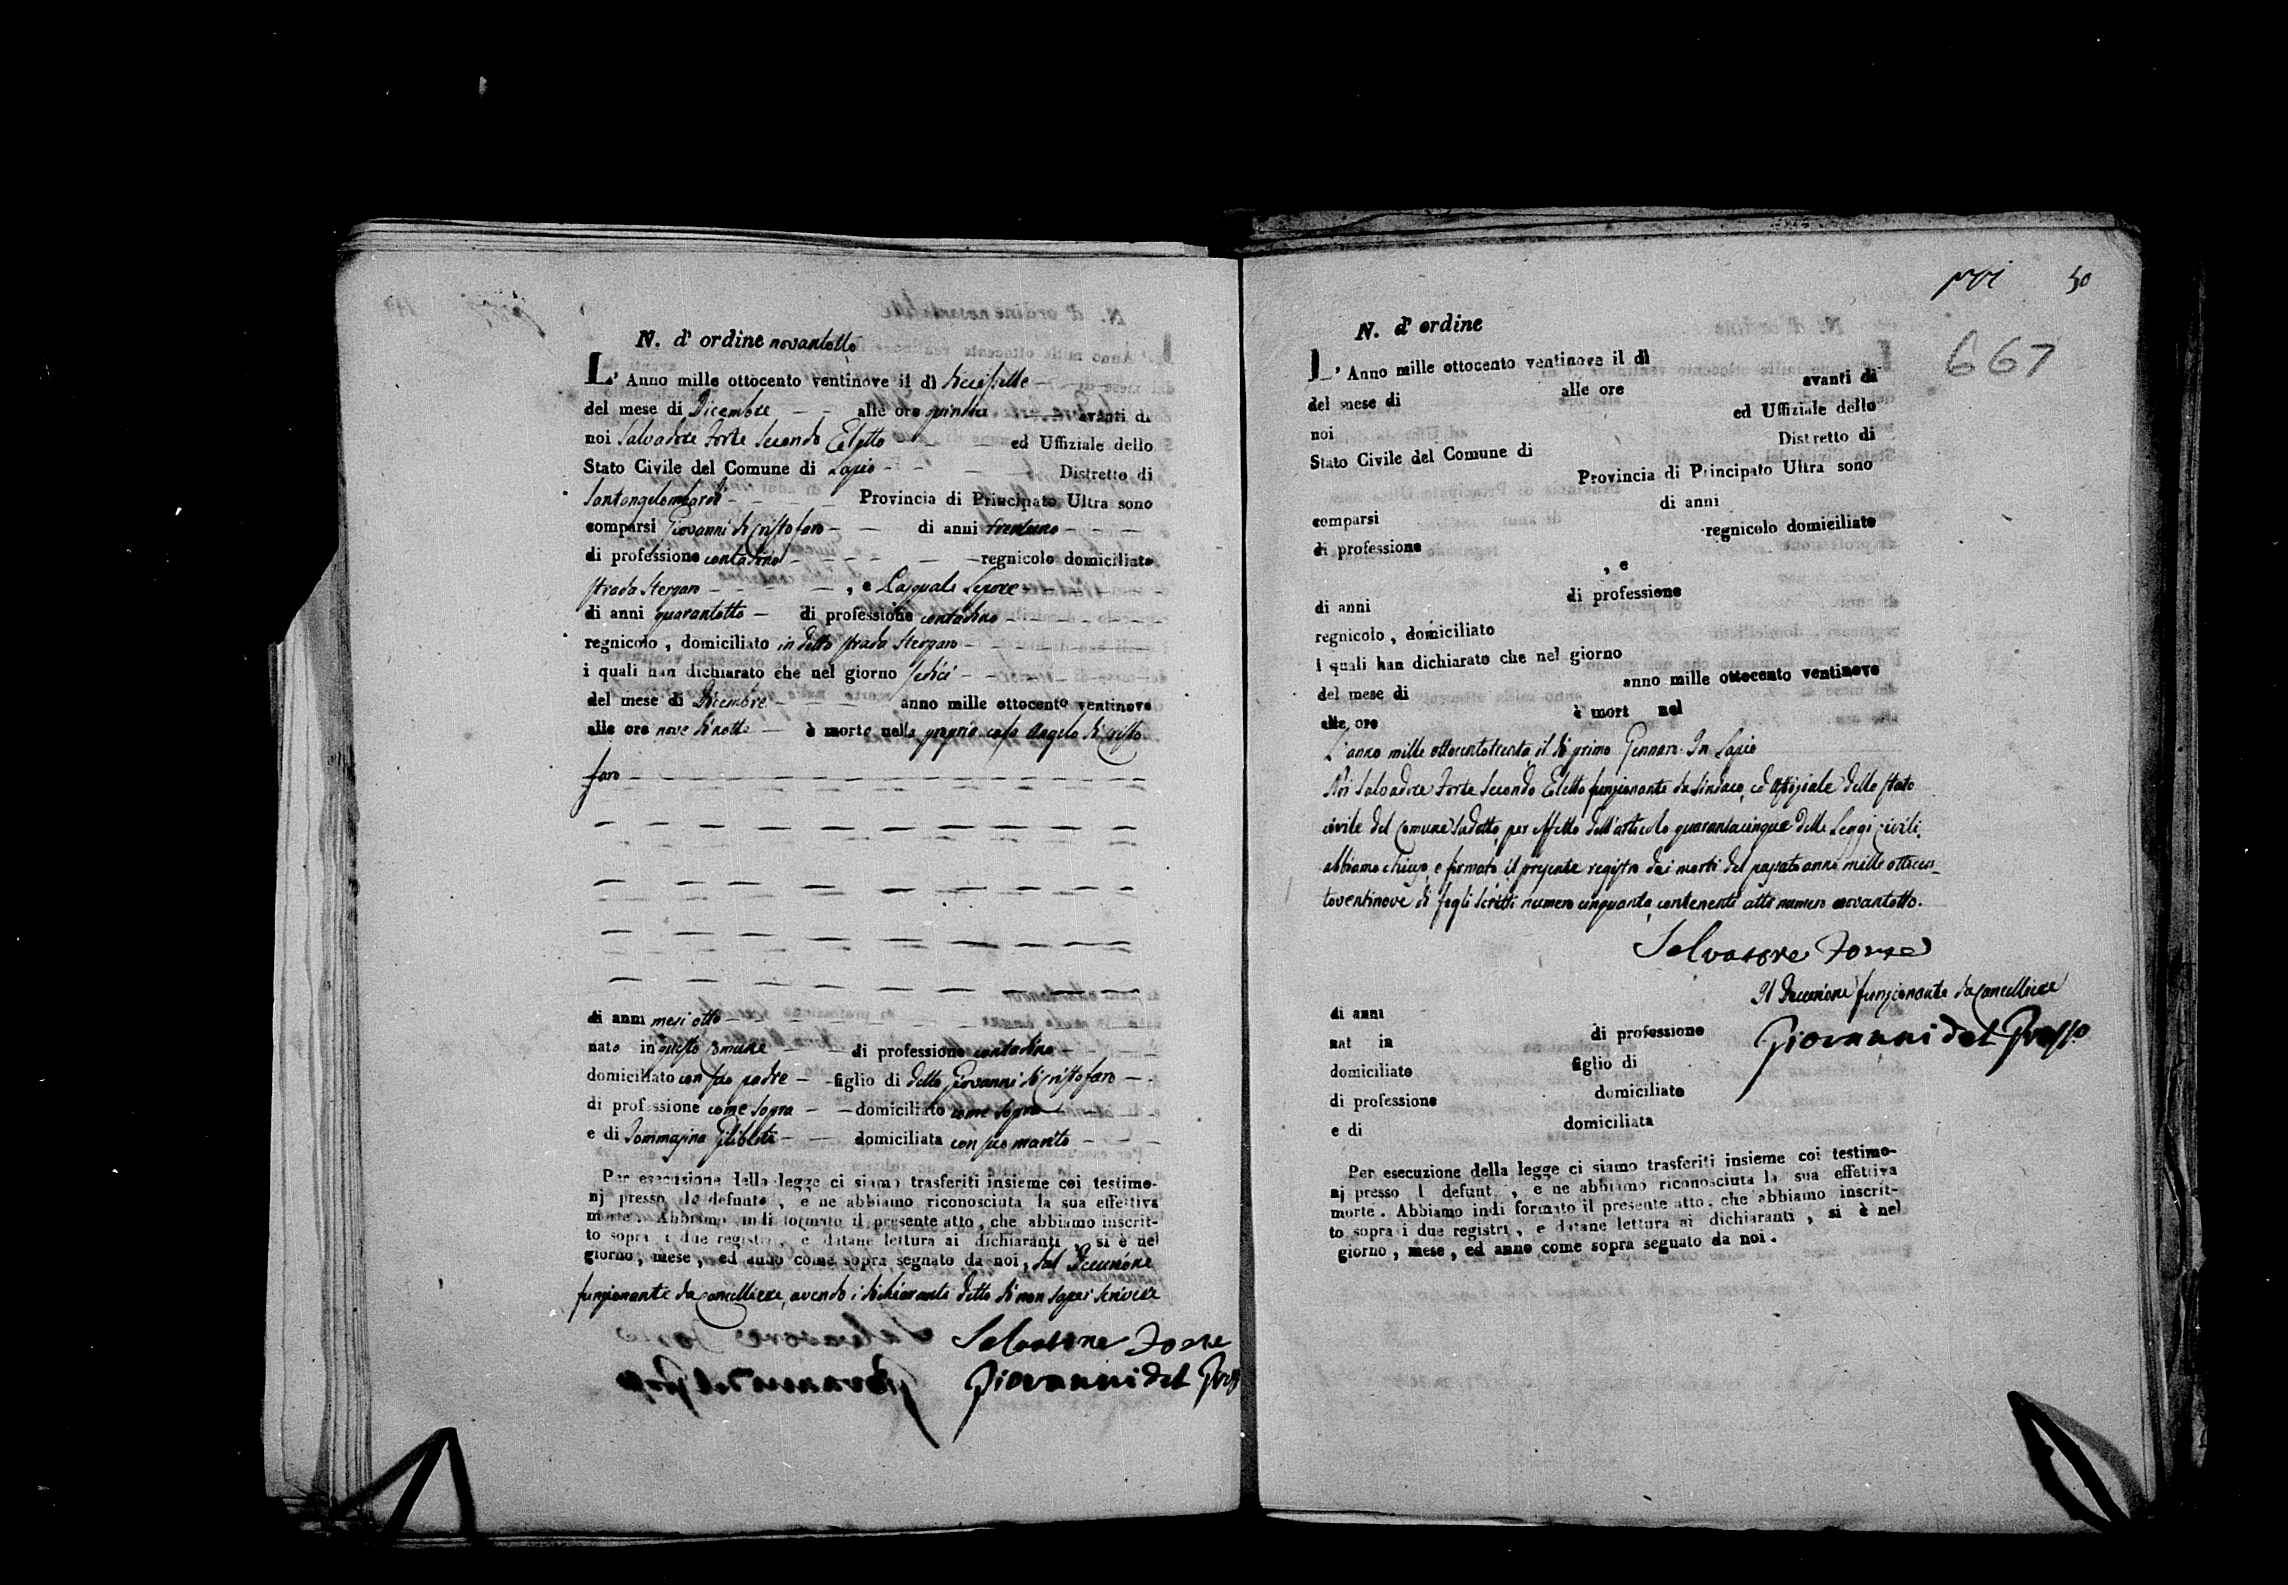 N. d' ordine novantotto
L' Anno mille ottocento ventinove il dì diecisette
del mese di Dicembre alle ore quindici avanti di
noi Salvadore Forte Secondo Eletto ed Uffiziale dello
Stato Civile del Comune di Lapio Distretto di
Santangelombardi Provincia di Principato Ultra sono
comparsi Giovanni di Cristofaro di anni trentuno
di professione contadino regnicolo domiciliato
strada Stergaro , e Pasquale Lepore
di anni quarantotto di professione contadino
regnicolo , domiciliato in detta strada Stergaro
i quali han dichiarato che nel giorno sedici
del mese di Dicembre anno mille ottocento ventinove
alle ore nove di notte è morto nella propria casa Angelo di Cristo
faro
di anni mesi otto
nato in questo Comune di professione contadino
domiciliato con suo padre figlio di detto Giovanni di Cristofaro
di professione come sopra domiciliato come sopra
e di Tommasina domiciliata con suo marito
Per esecuzione della legge ci siamo trasferiti insieme coi testimo-
nj presso lo defunto , e ne abbiamo riconosciuta la sua effettiva
morte . Abbiamo indi formato il presente atto , che abbiamo inscrit-
to sopra i due registri , e datane lettura ai dichiaranti , si è nel
giorno , mese , ed anno come sopra segnato da noi , dal Decurione
funzionante da Cancelliere, avendo i dichiaranti detto di non saper scrivere
Salvadore Forte
Giovanni del Grosso
50
667
N. d' ordine
L' Anno mille ottocento ventinove il dì
del mese di alle ore avanti di
noi ed Uffiziale dello
Stato Civile del Comune di Distretto di
Provincia di Principato Ultra sono
comparsi di anni
di professione regnicolo domiciliato
, e
di anni di professione
regnicolo , domiciliato
i quali han dichiarato che nel giorno
del mese di anno mille ottocento ventinove
alle ore è mort nel
L'anno mille ottocentotrenta il dì primo Gennaro In Lapio
Noi Salvadore Forte Secondo Eletto funzionante da Sindaco, ed Offiziale dello stato
civile del Comune sudetto, per effetto dell'articolo quarantacinque delle Leggi civili
abbiamo chiuso, e firmato il presente registro dei morti del passato anno mille ottocen_
toventinove di fogli scritti numero cinquanta, contenenti atti numero novantotto.
Salvadore Forte
Il Decurione funzionante da Cancelliere
Giovanni del Grosso
di anni
nat in di professione
domiciliato figlio di
di professione domiciliato
e di domiciliata
Per esecuzione della legge ci siamo trasferiti insieme coi testimo-
nj presso l defunt , e ne abbiamo riconosciuta la sua effettiva
morte . Abbiamo indi formato il presente atto , che abbiamo inscrit-
to sopra i due registri , e datane lettura ai dichiaranti , si è nel
giorno , mese , ed anno come sopra segnato da noi .